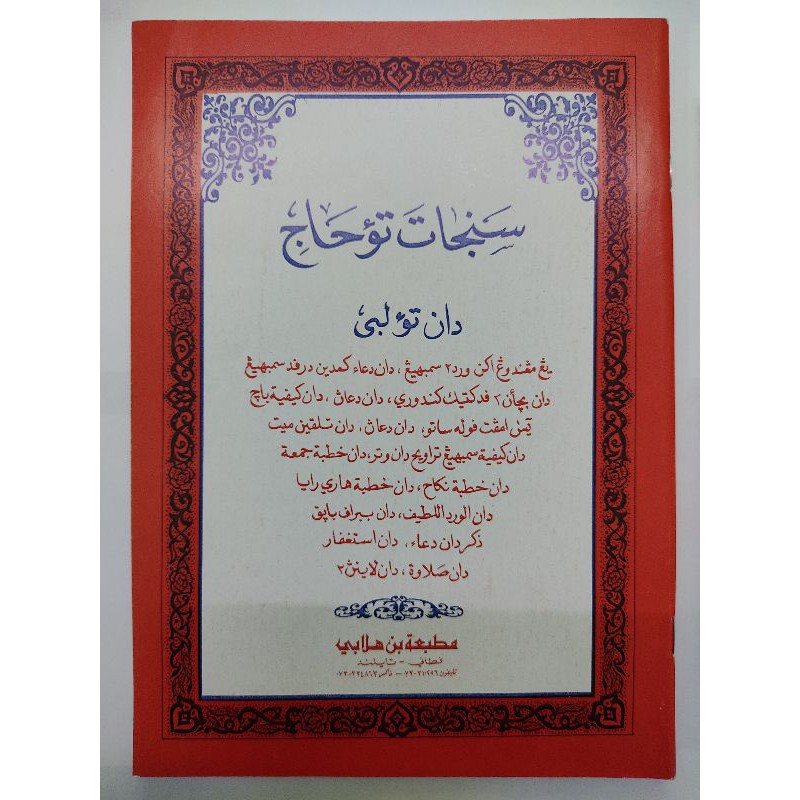 سَنجات تؤحَاجِ
دان تؤلبى
يڠ مڠندوڠ اكن ورد٢ سمبهيڠ، دان دعاء كمدين درفد سمبهيڠ
دان بچأن٢ فدكتيك كندوري، دان دعاڽ، دان كيفية باچ
يٰس امڤت فوله ساتو، دان دعاڽ، دان تلقين ميت
دان كيفية سمبهيڠ تراويح دان وتر، دان خطبة جمعة
دان خطبة نكاح، دان خطبة هاري رايا
دان الورد اللطيف، دان ببراف باڽق
ذكر دان دعاء، دان استغفار
دان صلاوة، دان لاينڽ٢
مطبعة بن هلابي
فطاني - تايلند